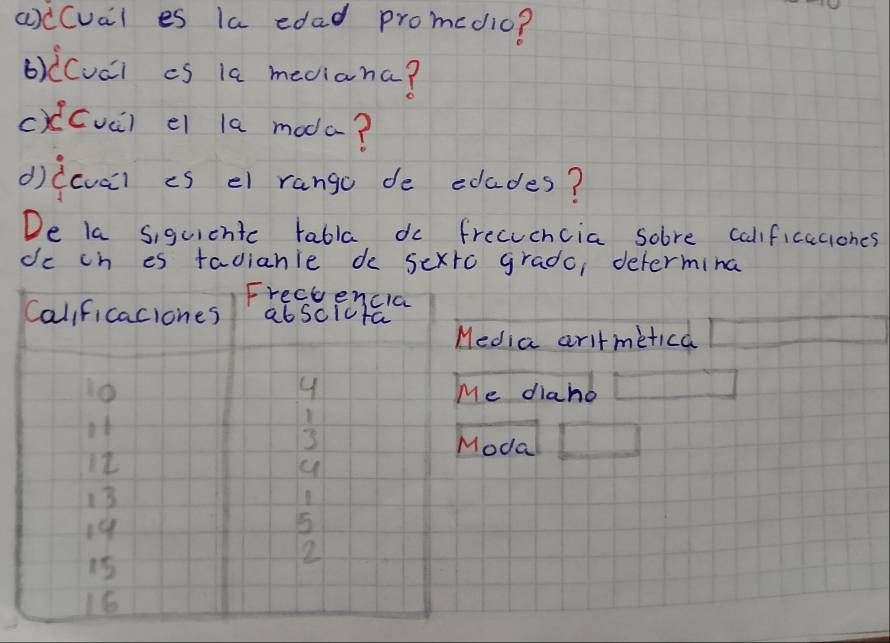 a)¿Cuál es la edad promedio?
b)¿Cuál es la mediana?
c)¿Cuál el la moda?
d)¿cuál es el rango de edades?
De la siguiente tabla de frecuencia sobre calificaciones
de un es tadianle de sexto grado, determina
Calificaciones Frecuencia absoluta
Media aritmètica
10 4
Me diano
11 1
12 3
Moda
13 4
14 1
15 5
16 2